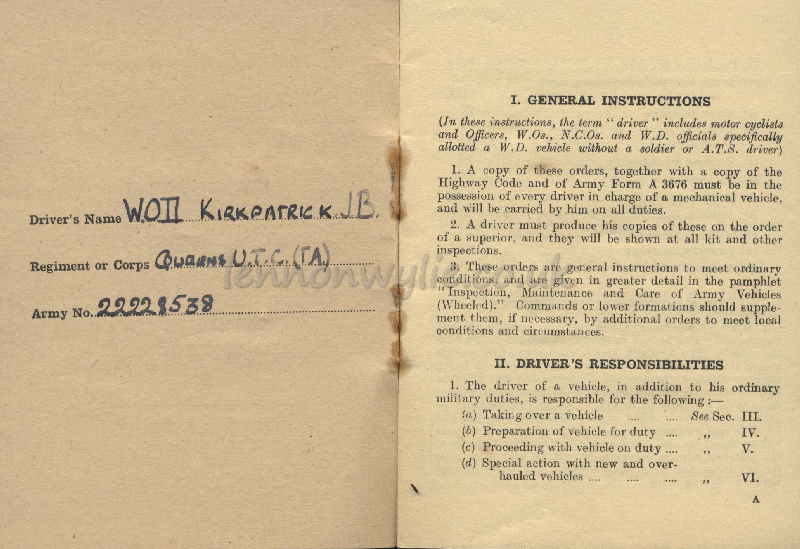 Driver's Name W.O.II KIRKPATRICK J.B.
Regiment or Corps QUEENS U.T.C. (TA)
Army No. 22228538
lennonwylie.co.uk
I. GENERAL INSTRUCTIONS
(In these instructions, the term “ driver ” includes motor cyclists
and Officers, W.Os., N.C.Os. and W.D. officials specifically
allotted a W.D. vehicle without a soldier or A.T.S. driver)
1. A copy of these orders, together with a copy of the
Highway Code and of Army Form A 3676 must be in the
possession of every driver in charge of a mechanical vehicle,
and will be carried by him on all duties.
2. A driver must produce his copies of these on the order
of a superior, and they will be shown at all kit and other
inspections.
3. These orders are general instructions to meet ordinary
conditions and are given in greater detail in the pamphlet
“ Inspection, Maintenance and Care of Army Vehicles
(Wheeled).” Commands or lower formations should supple-
ment them, if necessary, by additional orders to meet local
conditions and circumstances.
II. DRIVER'S RESPONSIBILITIES
1. The driver of a vehicle, in addition to his ordinary
military duties, is responsible for the following :—
(a) Taking over a vehicle .... .... See Sec. III.
(b) Preparation of vehicle for duty .... ,, IV.
(c) Proceeding with vehicle on duty .... ,, V.
(d) Special action with new and over-
hauled vehicles .... .... .... ,, VI.
A